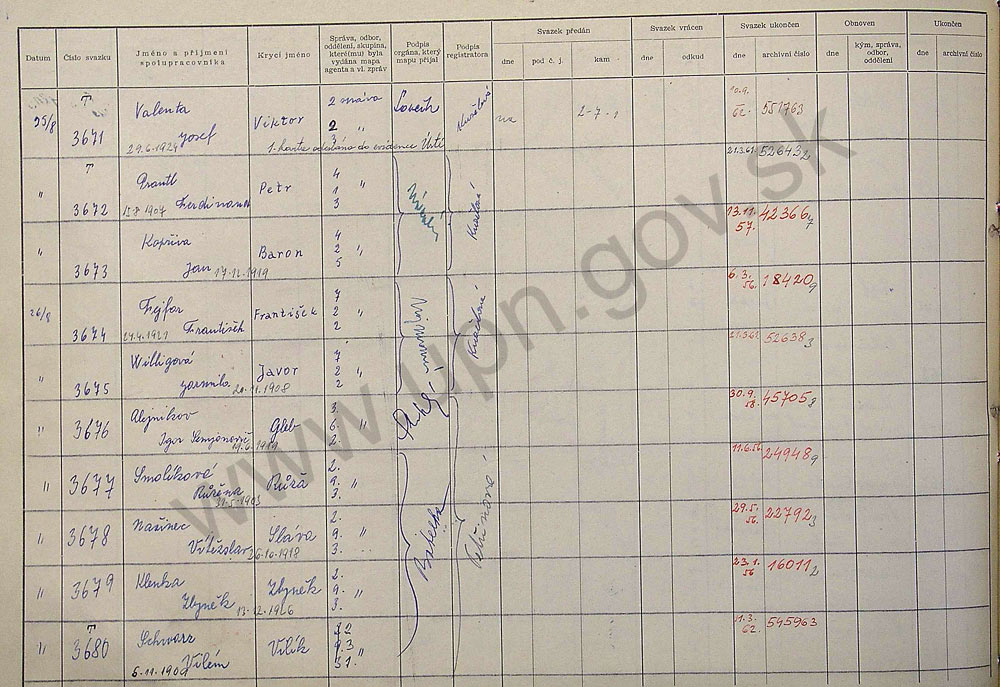 Datum
Číslo svazku
Jméno a příjmení
spolupracovníka
Krycí jméno
Správa, odbor,
oddělení, skupina,
které(mu) byla
vydána mapa
agenta a vl. zpráv
Podpis
orgána, který
mapu přijal
Podpis
registratora
Svazek předán
dne
pod č. j.
kam
Svazek vrácen
dne
odkud
Svazek ukončen
dne
archivní číslo
Obnoven
dne
kým, správa,
odbor,
oddělení
Ukončen
dne
archivní číslo
25/8
T
3671
Valenta
Josef
29.6.1924
Viktor
2 správa
2 "
3
na
2-7-1
10.9.
62.
551763
1. karta odeslána do evidence Ústí
"
T
3672
Ferdinand
15.8.1907
Petr
4
1 "
3
21.3.61
52643 2
"
3673
Kopřiva
Jan 17.12.1919
Baron
4
2 "
5
13.11.
57.
42366 7
26/8
3674
Fejfar
František
František
7
2 "
2
6.3.
56.
18420 9
"
3675
Willigová
Jarmila 20.11.1908
Javor
7
2 "
2
21.3.61
52638 3
"
3676
Alejnikov
Igor Semjonovič
Gleb
3.
6. "
2.
30.9.
58.
45705 8
"
3677
Smolíková
Růžena
31.5.1903
Růžá
2.
9. "
3.
11.6.56
24948 9
"
3678
Nažinec
Vítězslav 26.10.1918
Sláva
2.
9. "
3.
29.5.
56.
22792 3
"
3679
Klenka
Zbyněk
13.12.1926
Zbyněk
2.
9. "
3.
23.1.
56
16011 2
"
T
3680
Schwarz
Vilém
6.11.1900
Vilík
9.3 "
31.3.
62.
545963
www.upn.gov.sk